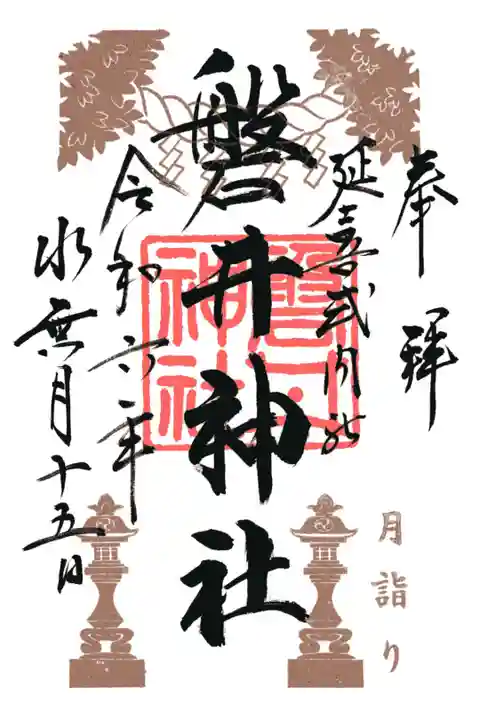 奉拝
延喜式内社
磐井神社
磐井神社
令和六年
水無月十五日
月詣り